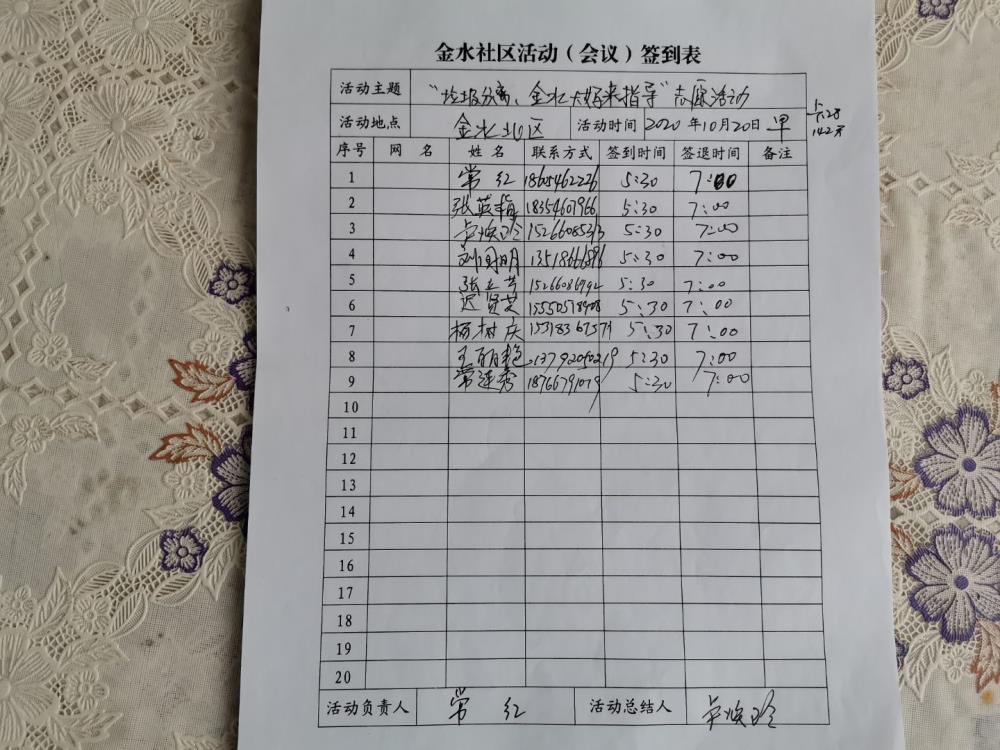 金水社区活动（会议）签到表
活动主题 “垃圾分离、金水大妈来指导”志愿活动
活动地点 金水北区 活动时间 2020年10月20日 早
序号 网名 姓名 联系方式 签到时间 签退时间 备注
1 常红 18605462226 5:30 7:00
2 张英梅 18354607966 5:30 7:00
3 卢焕玲 15266085313 5:30 7:00
4 刘国明 13518666896 5:30 7:00
5 张立芳 15266086992 5:30 7:00
6 迟贤英 15550578908 5:30 7:00
7 杨树庆 5:30 7:00
8 王丽艳 13792050219 5:30 7:00
9 常延秀 18766791079 5:30 7:00
10
11
12
13
14
15
16
17
18
19
20
活动负责人 常红 活动总结人 卢焕玲